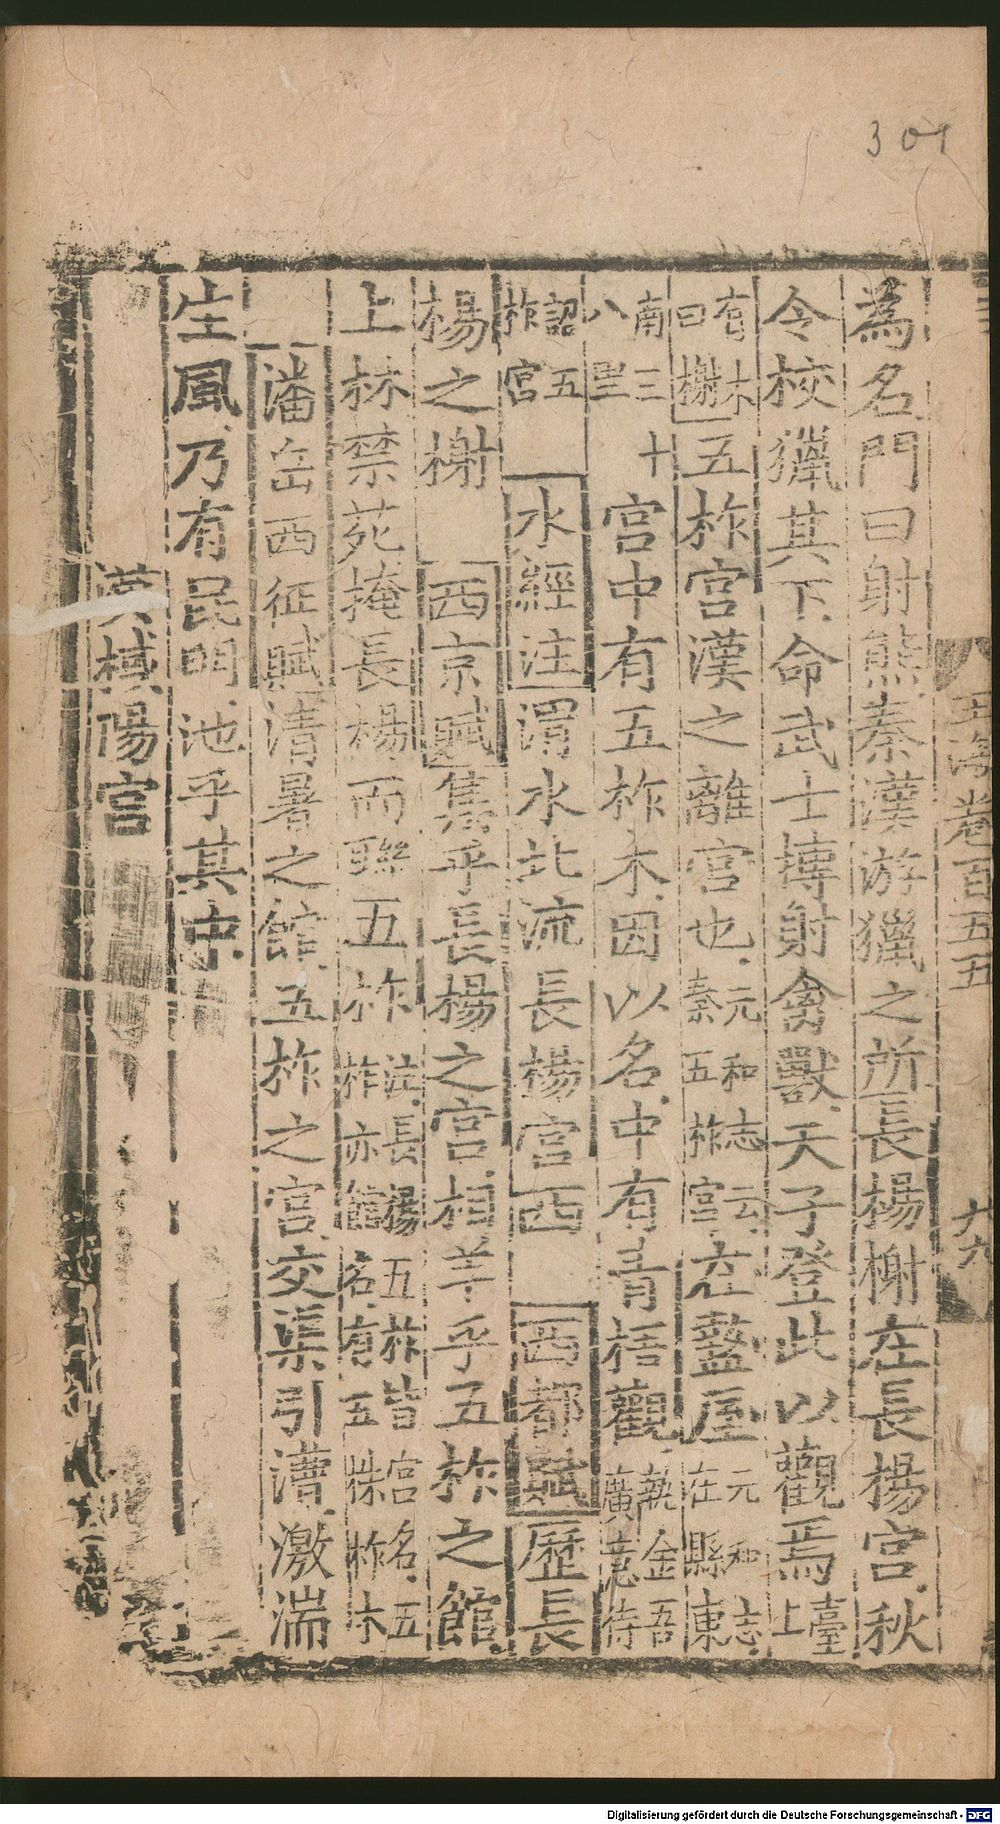 301
玉海卷百五五
十六
為名門曰射熊秦漢游獵之所長楊榭在長楊宮秋
令校獵其下命武士摶射禽獸天子登此以觀焉臺上
有木曰榭五柞宮漢之離宮也元和志云秦五柞宮在盩厔元和志在縣東
南三十八里宮中有五柞木因以名中有青梧觀執金吾廣意侍
詔五柞宮 水經注渭水北流長楊宮西 西都賦歷長
楊之榭 西京賦集乎長楊之宮相羊乎五柞之館
上林禁苑掩長楊而聯五柞注長楊五柞皆宮名五柞亦館名有五株柞木
潘岳西征賦清暑之館五柞之宮交渠引漕激湍
生風乃有昆明池乎其中
漢棫陽宮
Digitalisierung gefördert durch die Deutsche Forschungsgemeinschaft - DFG